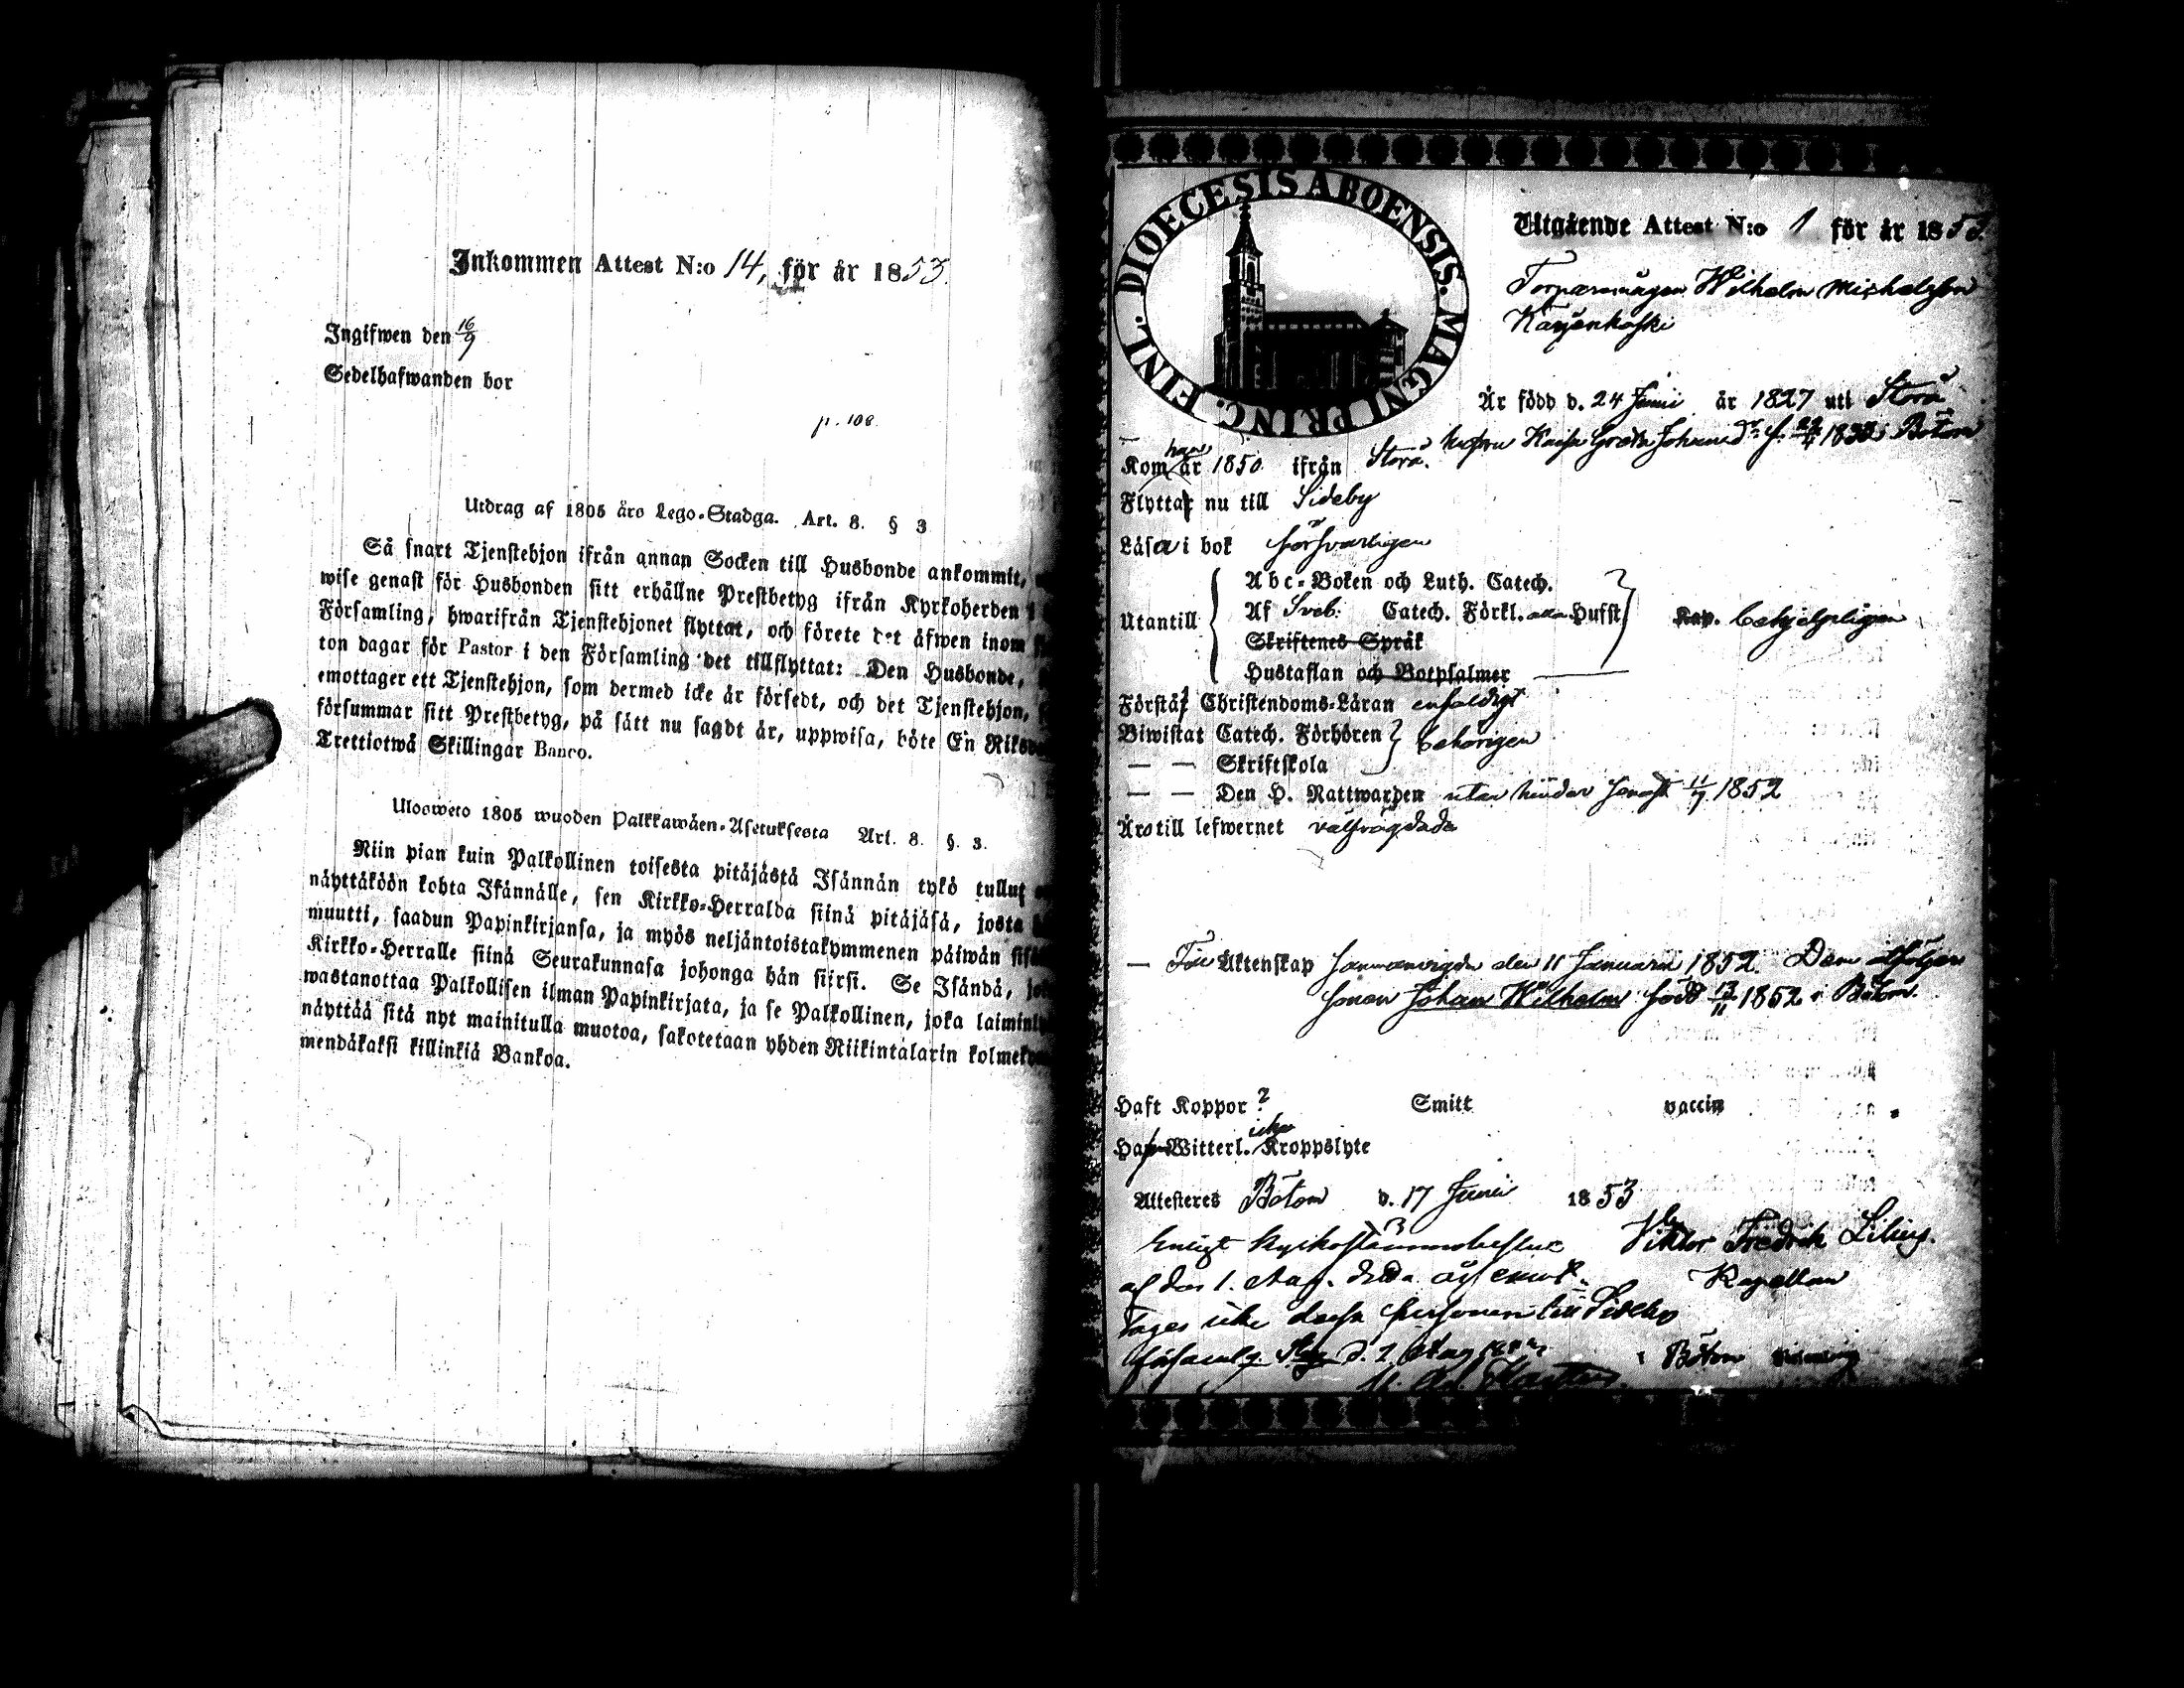 Inkommen Attest N:o 14, för år 1853.
Ingifwen den 16/9
Sedelhafwanden bor
p. 108
Utdrag af 1805 års Lego-Stadga. Art. 8. § 3
Så snart Tjenstehjon ifrån annan Socken till Husbonde ankommit,
wise genast för Husbonden sitt erhållne Prestbetyg ifrån Kyrkoherden i
Församling, hwarifrån Tjenstehjonet flyttat, och förete det äfwen inom
ton dagar för Pastor i den Församling det tillflyttat: Den Husbonde,
emottager ett Tjenstehjon, som dermed icke är försedt, och det Tjenstehjon,
försummar sitt Prestbetyg, på sätt nu sagdt är, uppwisa, böte En
Trettiotwå Skillingar Banco.
Ulosweto 1805 wuoden Palkkawäen-Asetuksesta Art. 8. §. 3.
Niin pian kuin Palkollinen toisesta pitäjästä Isännän tykö tullut
näyttäköön kohta Isännälle, sen Kirkko-Herralda siinä pitäjäsä, josta
muutti, saadun Papinkirjansa, ja myös neljäntoistakymmenen päiwän
Kirkko-Herralle siinä Seurakunnasa johonga hän siirsi. Se Isändä,
wastanottaa Palkollisen ilman Papinkirjata, ja se Palkollinen, joka
näyttää sitä nyt mainitulla muotoa, sakotetaan yhden Riikintalarin
mendäkaksi killinkiä Bankoa.
DIOECESIS ABOENSIS. MAGNI PRINC. FINL.
Utgående Attest N:o 1 för år 1853.
Wilhelm Michelsson
Är född d. 24 Junii år 1827 uti Storå
hustru Kaisa Greta Johansdr f. i Bötom
Kom år 1850 ifrån Storå.
Flyttar nu till Sideby
Läsa i bok försvarligen
Abc-Boken och Luth. Catech.
Utantill Af Sveb: Catech. Förkl. Hufst behjelpligen
Skriftenes Språk
Hustaflan och Botpsalmer
Förstå Christendoms-Läran enfaldigt
Biwistat Catech. Förhören behörigen
— — Skriftskola
— — Den H. Nattwarden utan hinder senast 11/7 1852
Äro till lefwernet välfrägdade
— Till Äktenskap sammanvigde den 11 Januarii 1852. Dem åtföljer
sonen Johan Wilhelm född 13/11 1852 i Bötom.
Haft Koppor ? Smitt vaccin
Witterl. icke Kroppslyte
Attesteres Bötom d. 17 Junii 1853
Enligt Kyrkostämmobeslut Viktor Fredrik Lilius.
af den 1. Aug. Kapellan
tages icke dessa personer till Sideby
d. 2 Aug
Bötom